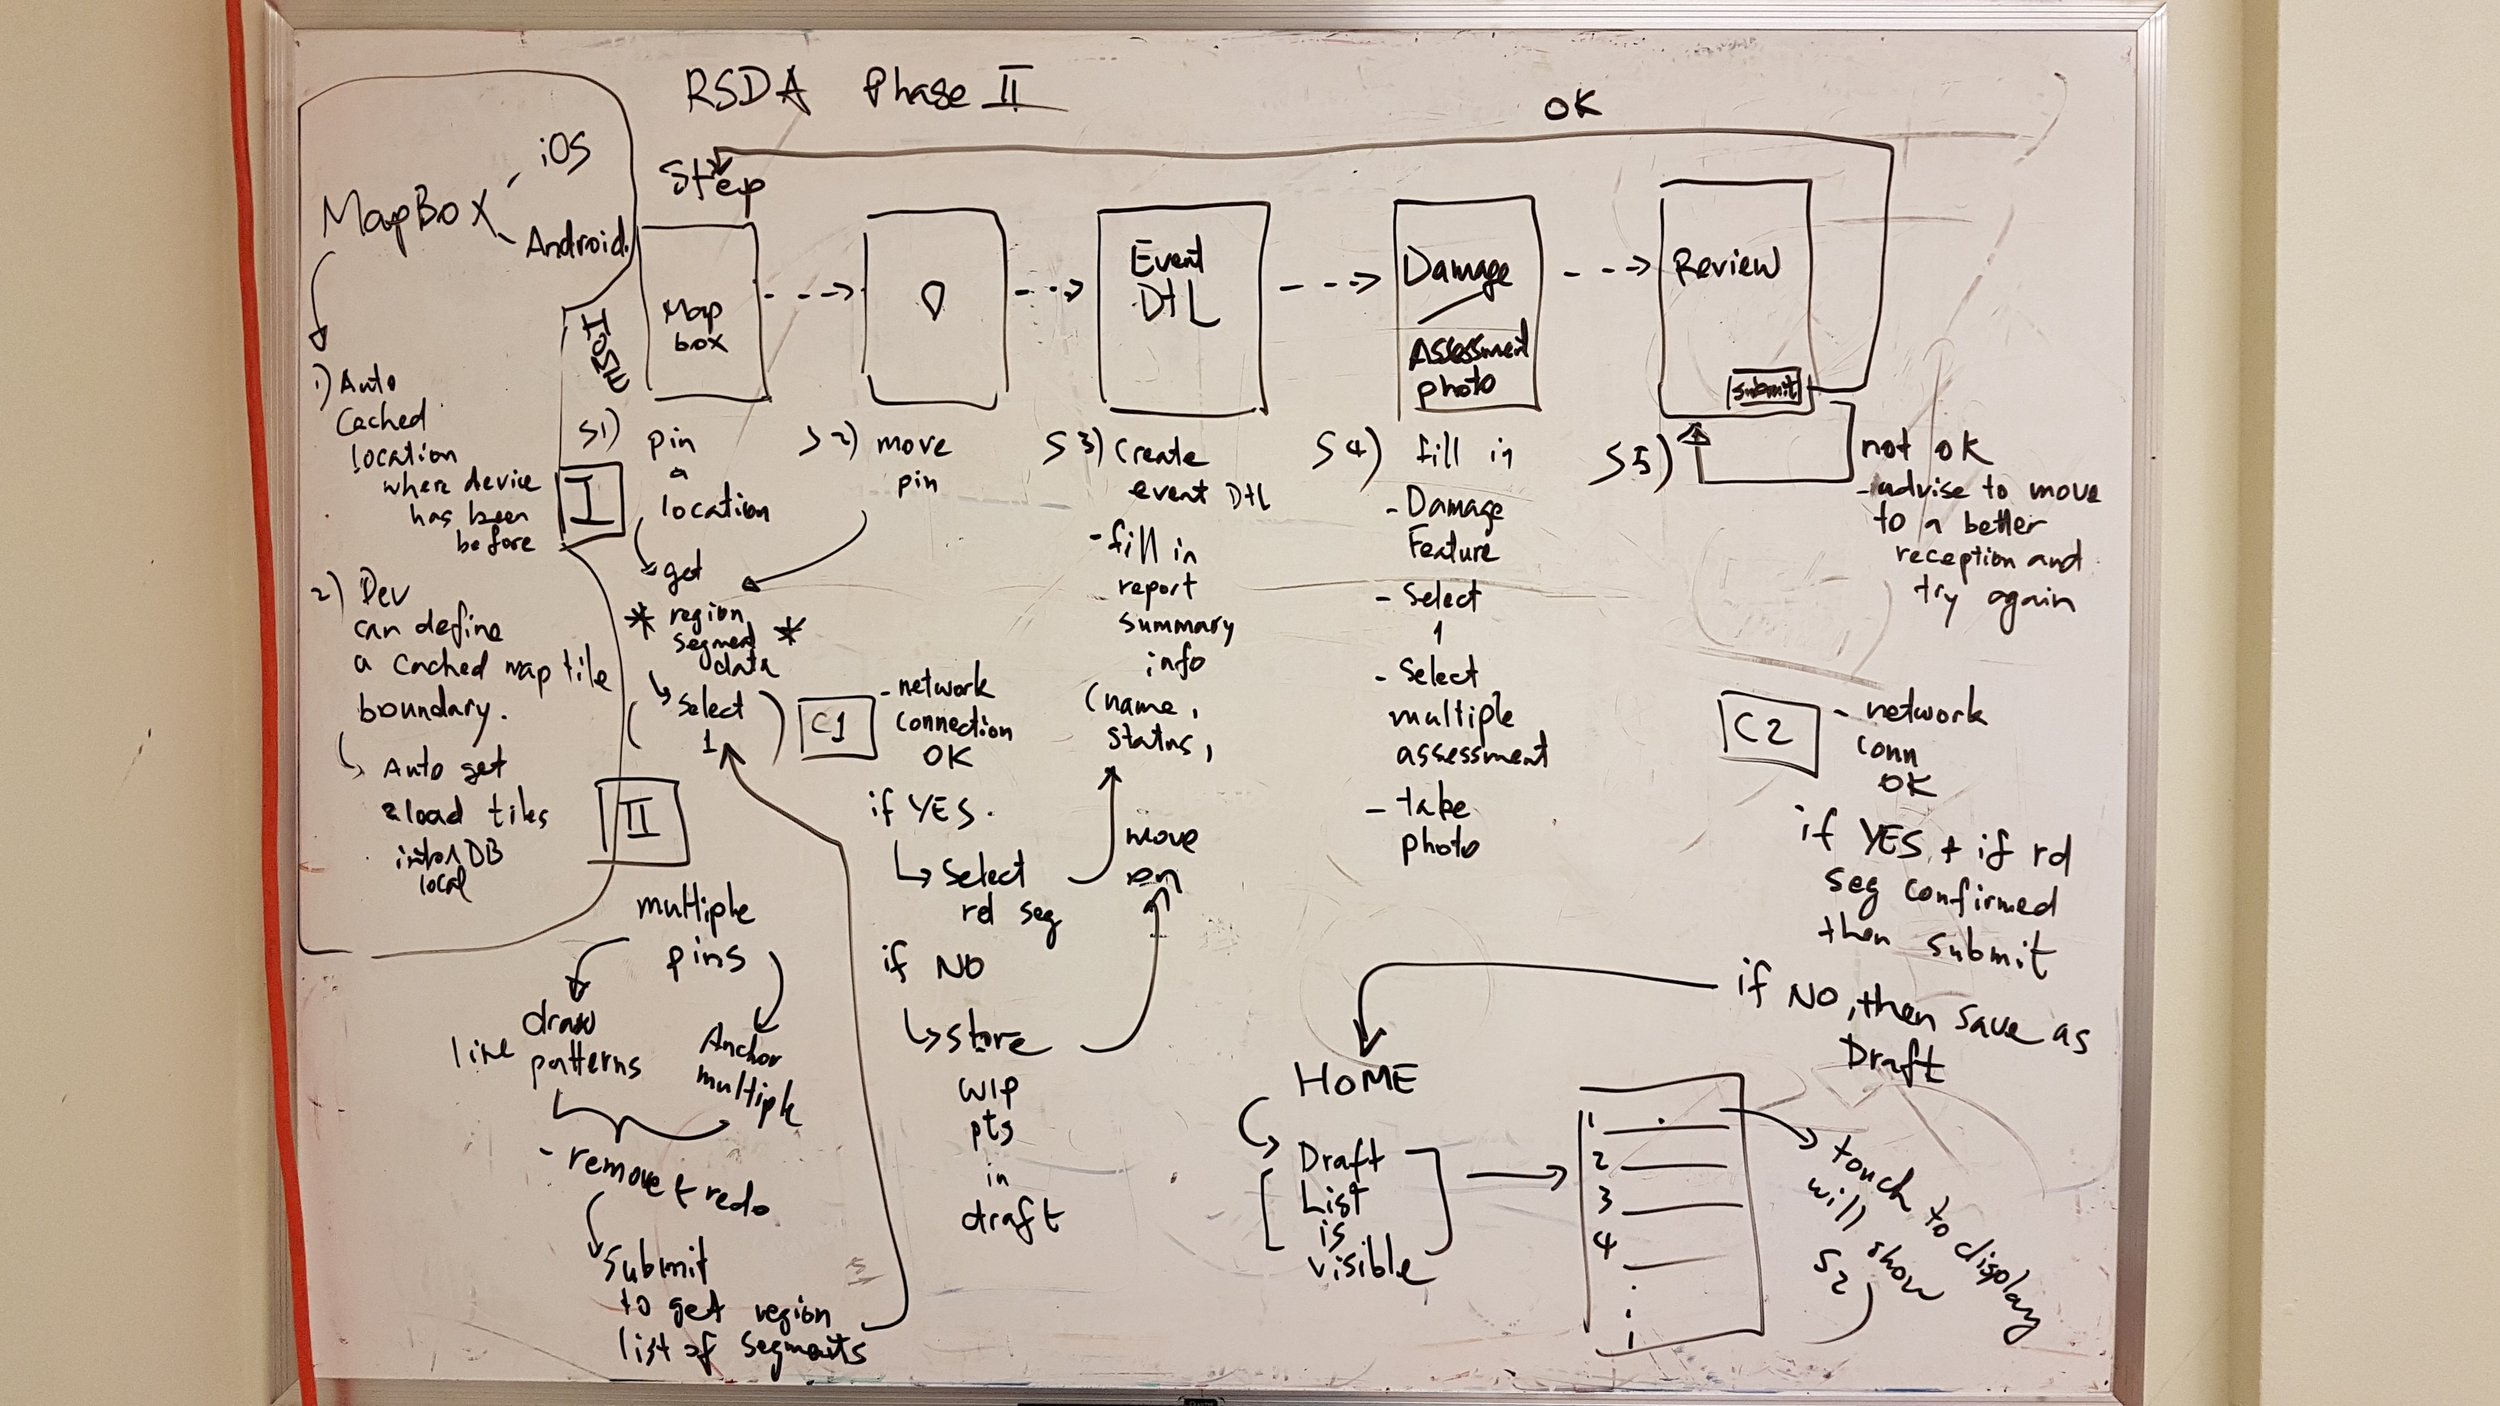 RSDA Phase II
OK
MapBox
iOS
Android.
1) Auto
Cached
location
where device
has been
before
2) Dev
can define
a cached map tile
boundary.
Auto get
& load tiles
into DB
local
Step
Map
box
Event
DtL
Damage
Assessment
photo
Review
submit
S1) pin
a
location
I
get
* region *
segment
data
( select )
1
II
multiple
pins
draw
line patterns
Anchor
multiple
- remove & redo
submit
to get region
list of segments
S2) move
pin
C1
- network
connection
OK
if YES.
select
rd seg
if NO
store
WIP
pts
in
draft
move
on
S3) Create
event Dtl
- fill in
report
summary
info
(name,
status,
S4) fill in
- Damage
Feature
- Select
1
- Select
multiple
assessment
- take
photo
S5)
not ok
- advise to move
to a better
reception and
try again
C2
- network
conn
OK
if YES + if rd
seg confirmed
then submit
if NO, then save as
Draft
HOME
Draft
List
is
visible
1
2
3
4
touch to display
will show
S2